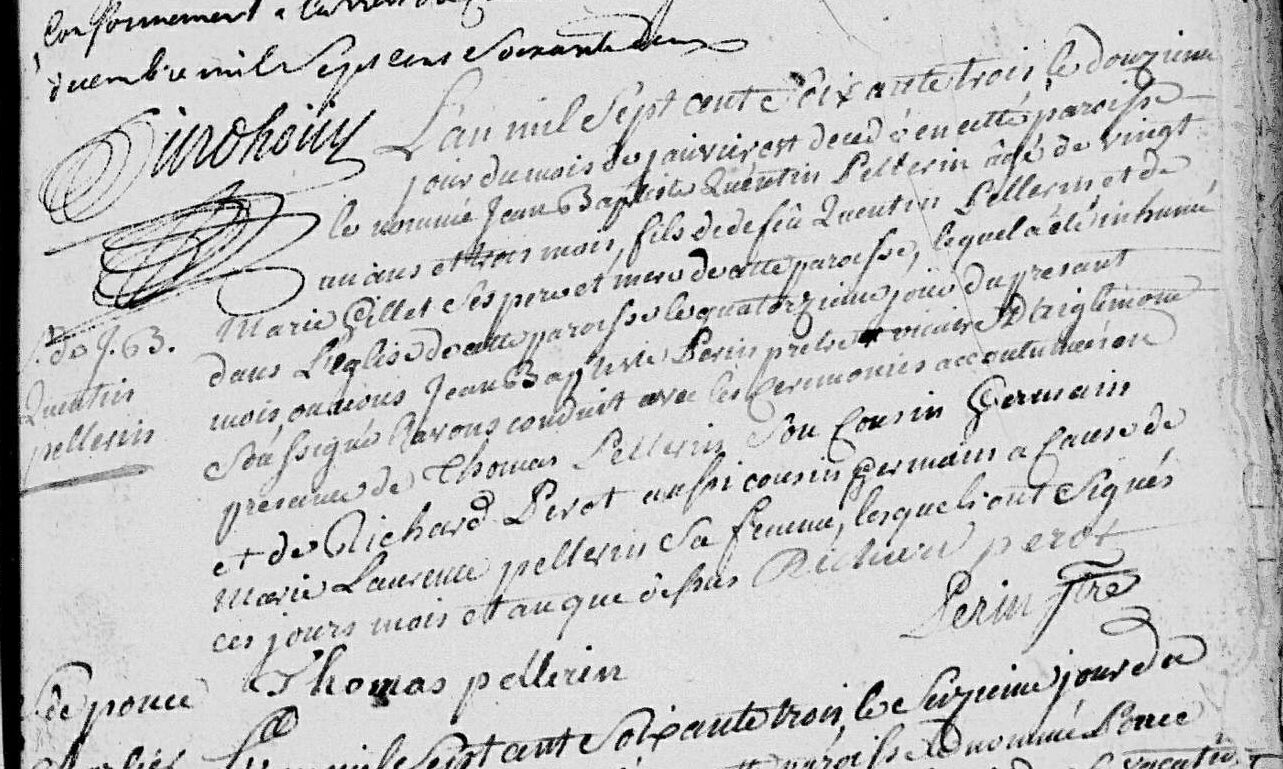 conformement a
decembre mil Sept cens Soixante deux
L'an mil Sept cent Soixante trois, le douzieme
jour du mois de janvier est decedé en cette paroisse
le nommé Jean Baptiste Quentin Pellerin âgé de vingt
un ans et trois mois, fils de defeû Quentin Pellerin et de
Marie Gillet Ses pere et mere de cette paroisse, lequel a été inhumé
dans L'eglise de cette paroisse le quatorzieme jour du presant
mois, ou nous Jean Baptiste Perin pretre vicaire D'aiglemont
Soussigné Lavons conduit avec les Ceremonies accoutumées en
presence de Thomas Pellerin Son Cousin Germain
et de Richard Perot aussi cousin Germain a Cause de
Marie Laurence pellerin Sa femme, lesquels ont Signés
ces jours mois et an que dessus Richard perot
S. de J. 63.
Quentin
pellerin
Perin ptre
Thomas pellerin
de ponce
L'an mil Sept cent Soixante trois, le Seizieme jour du
paroisse le nommé Ponce